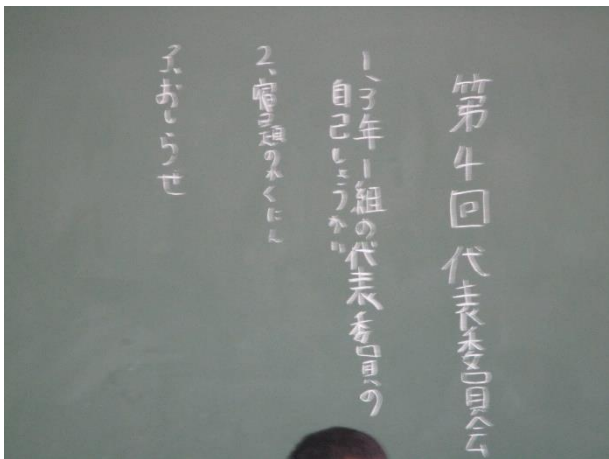 第4回 代表委員会
1、3年1組の代表委員の
自己しょうかい
2、宿題のかくにん
3、おしらせ